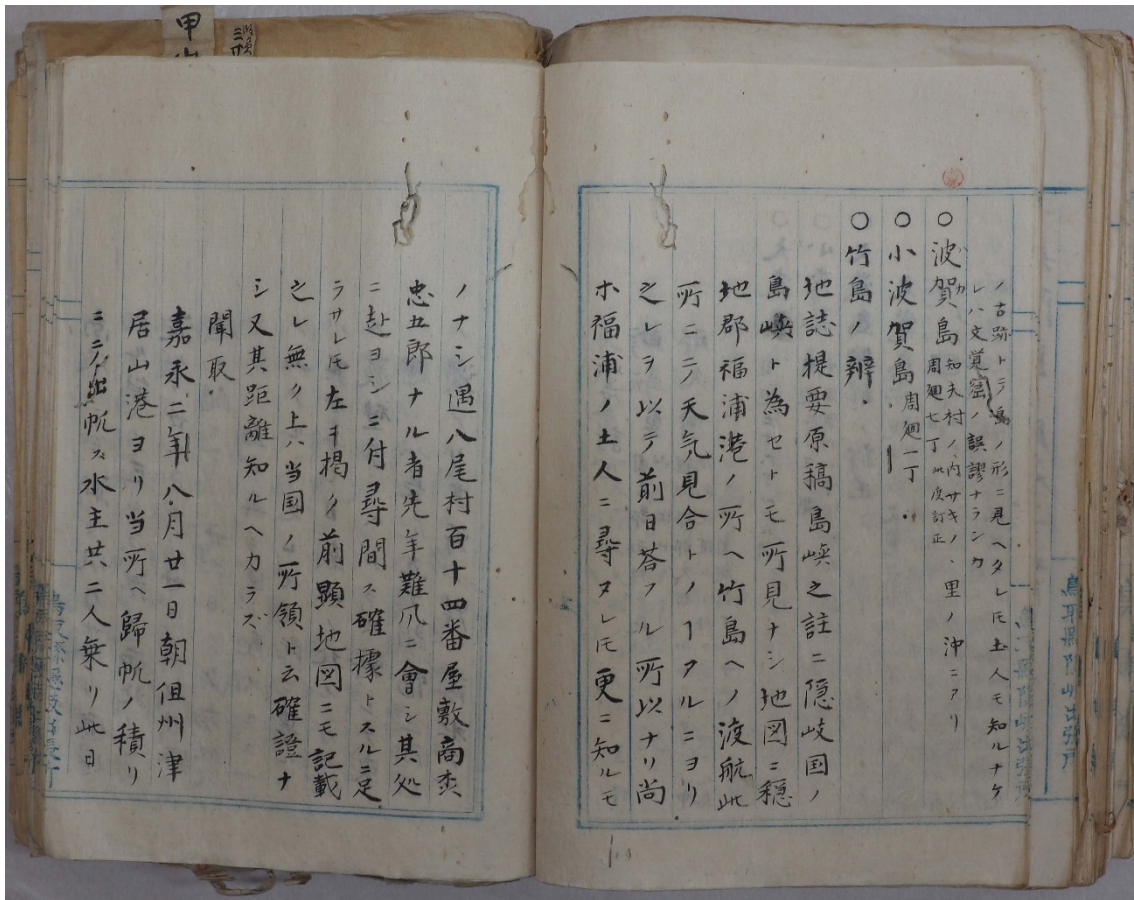 ノ古跡トラ島ノ形ニ見ヘタレ𪜈土人モ知ルナケ
レハ文覚窟ノ誤謬ナランカ
○波賀島 知夫村ノ内サキノ、里ノ沖ニアリ
周廻七丁 此度訂正
○小波賀島 周廻一丁
○竹島ノ辨
地誌提要原稿島嶼之註ニ隠岐国ノ
島嶼ト為セトモ所見ナシ地図ニ穏
地郡福浦港ノ所ヘ竹島ヘノ渡航此
所ニテ天気見合トノヿアルニヨリ
之レヲ以テ前日荅フル所以ナリ尚
ホ福浦ノ土人ニ尋タレ𪜈更ニ知ルモ
ノナシ遇八尾村百十四番屋敷商
忠五郎ナル者先年難風ニ會シ其処
ニ赴ヨシニ付尋問ス確據トスルニ足
ラサレ𪜈左ヰ掲ク前顕地図ニモ記載
之レ無ク上ハ当国ノ所領ト云確證ナ
シ又其距離知ルヘカラズ
聞取
嘉永二年八月廿一日朝但州津
居山港ヨリ当所ヘ歸帆ノ積リ
ニテ出帆ス水主共二人乗リ此日